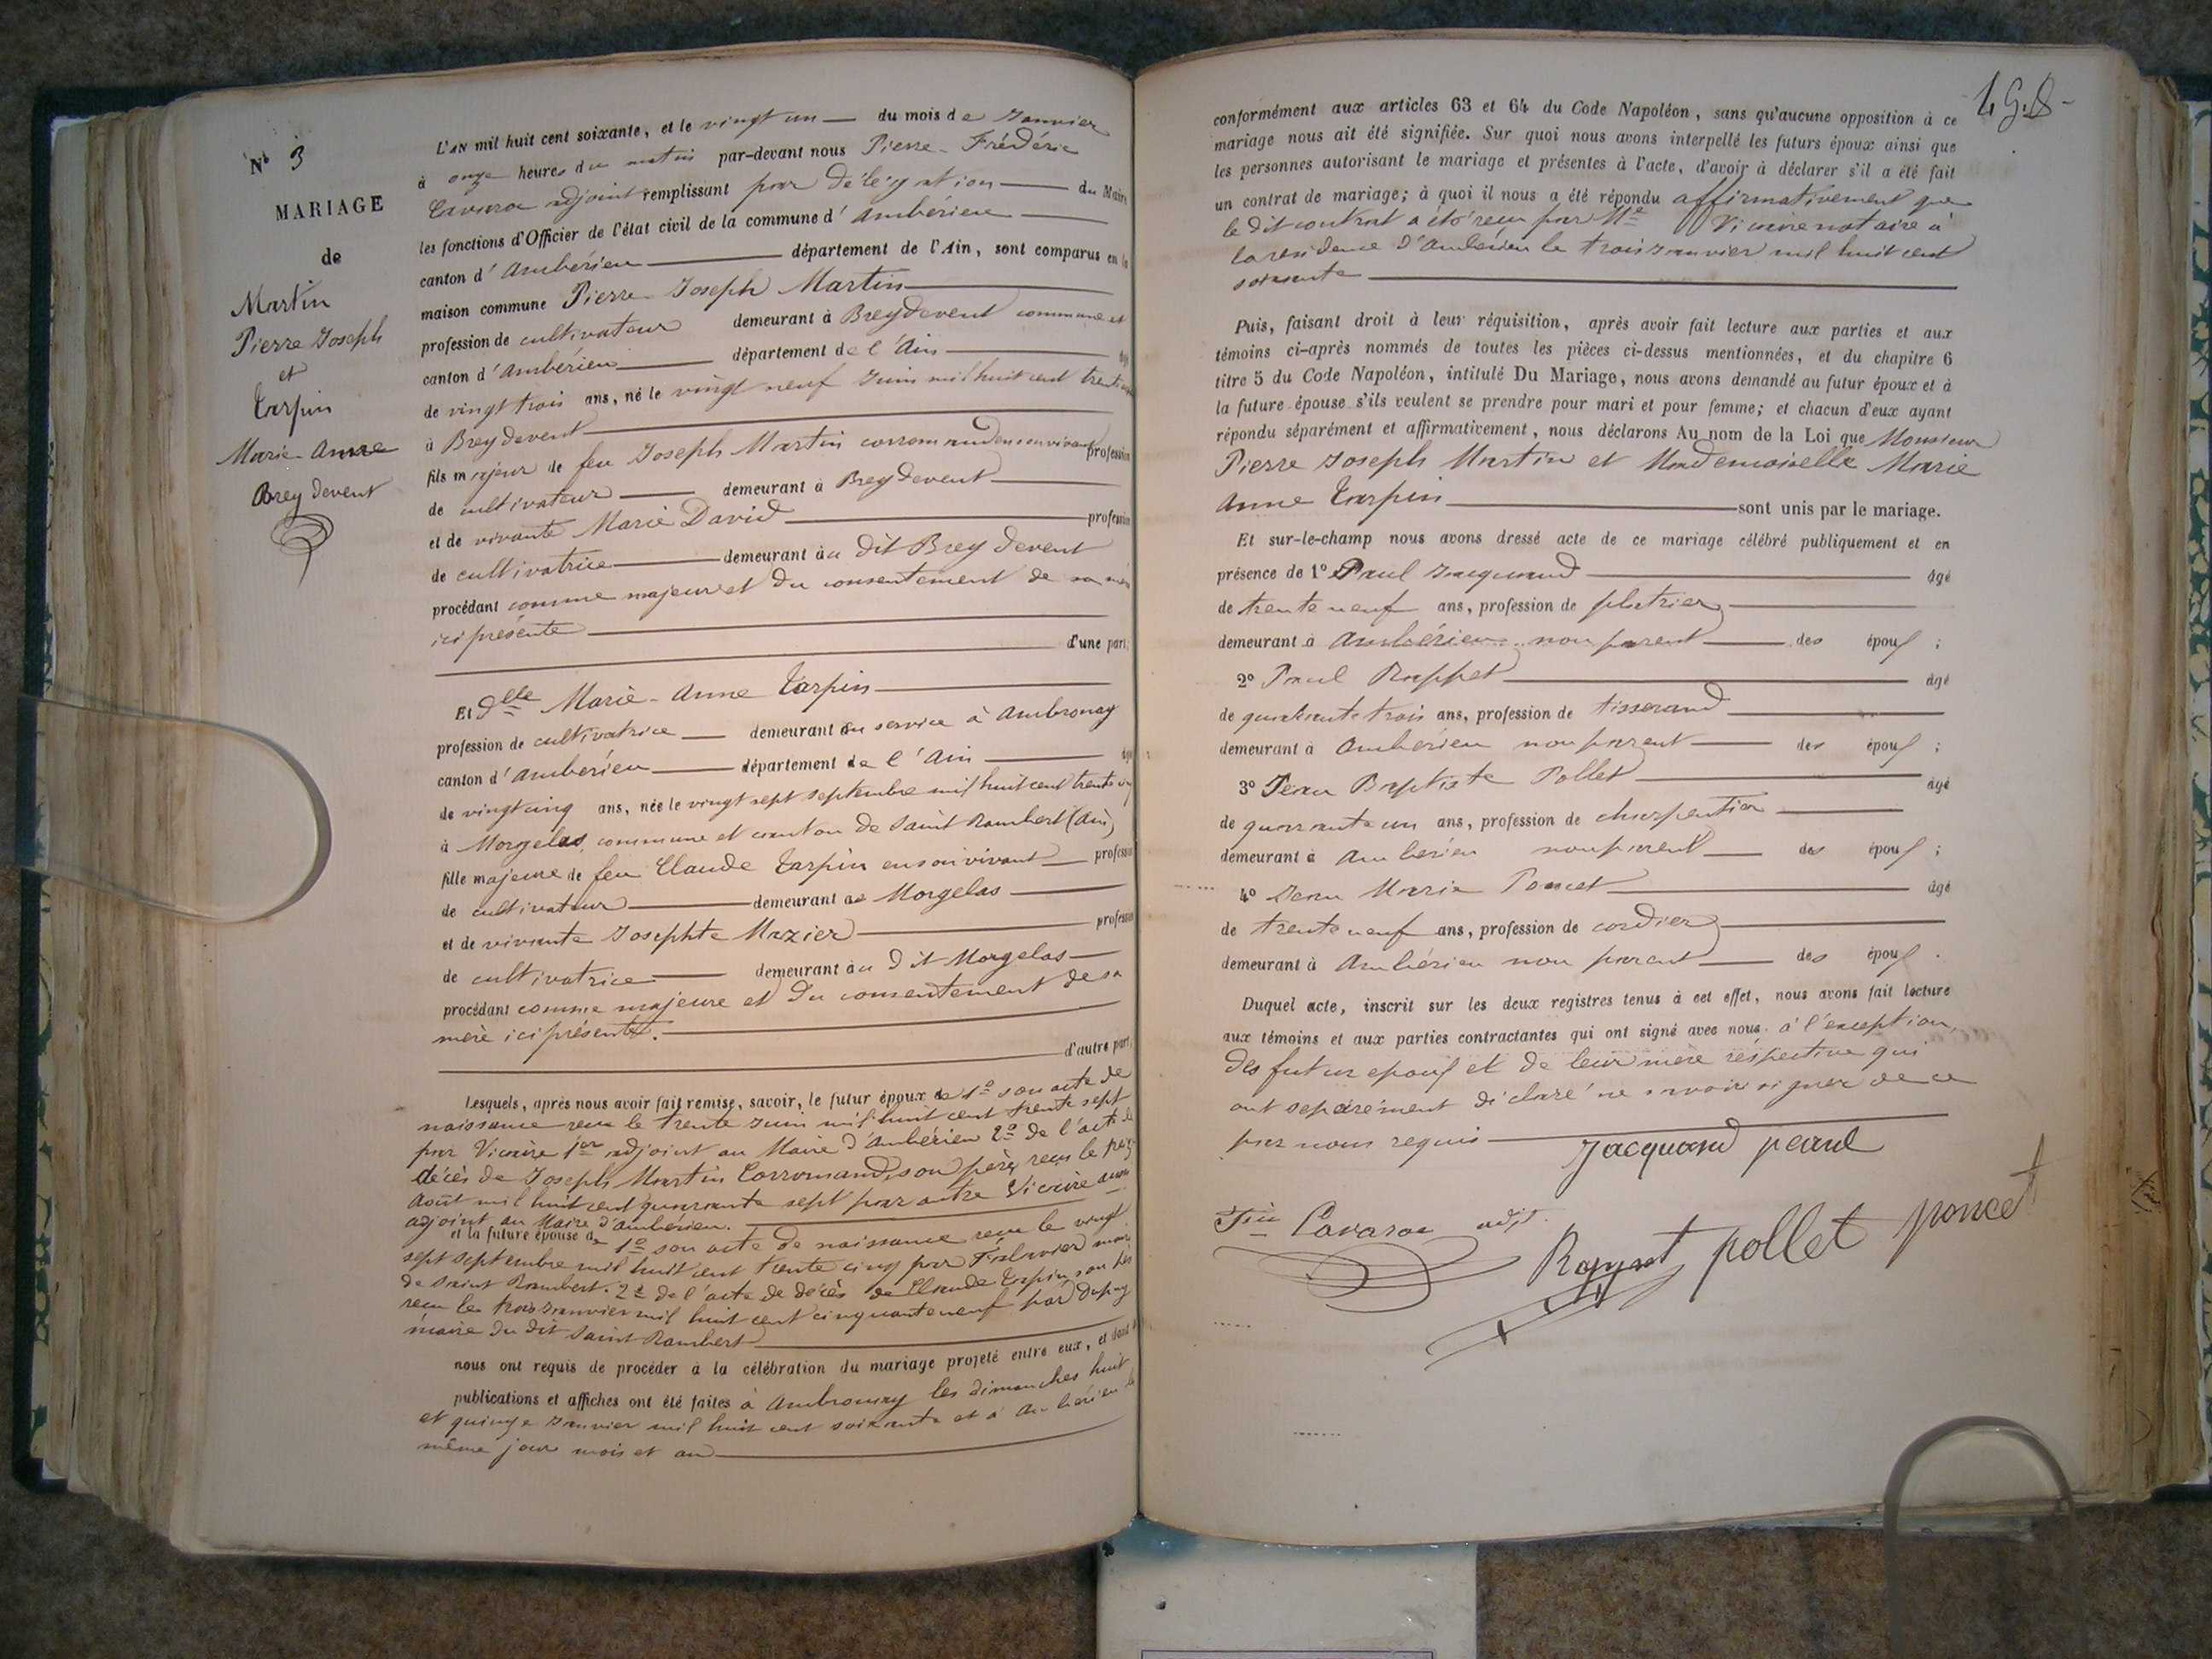 Nº 3
MARIAGE
de
Martin
Pierre Joseph
et
Tarpin
Marie Anne
Breydevent
L'AN mil huit cent soixante, et le vingt un du mois de Janvier
à onze heures du matin par-devant nous Pierre-Frédéric
adjoint remplissant par délégation du Maire
les fonctions d'Officier de l'état civil de la commune d'Ambérieu
canton d'Ambérieu département de l'Ain, sont comparus en la
maison commune Pierre-Joseph Martin
profession de cultivateur demeurant à Breydevent commune et
canton d'Ambérieu département de l'Ain
de vingt trois ans, né le vingt neuf Juin mil huit cent trente
à Breydevent
fils majeur de feu Joseph Martin corromand en son vivant profession
de cultivateur demeurant à Breydevent
et de vivante Marie David profession
de cultivatrice demeurant au dit Breydevent
procédant comme majeur et du consentement de sa mère
ici présente
d'une part;
Et Dlle Marie-Anne Tarpin
profession de cultivatrice demeurant en service à Ambronay
canton d'Ambérieu département de l'Ain
de vingt cinq ans, née le vingt sept septembre mil huit cent trente
à Morgelas, commune et canton de Saint Rambert (Ain)
fille majeure de feu Claude Tarpin en son vivant profession
de cultivateur demeurant à Morgelas
et de vivante Josephte Mazier profession
de cultivatrice demeurant au dit Morgelas
procédant comme majeure et du consentement de sa
mère ici présente.
d'autre part;
Lesquels, après nous avoir fait remise, savoir, le futur époux de 1º son acte de
naissance reçu le trente Juin mil huit cent trente sept
par Vicaire 1er adjoint au Maire d'Ambérieu 2º de l'acte de
décès de Joseph Martin Corromand, son père, reçu le
Août mil huit cent quarante sept par autre Vicaire aussi
adjoint au Maire d'Ambérieu.
et la future épouse de 1º son acte de naissance reçu le vingt
sept septembre mil huit cent trente cinq par maire
de Saint Rambert. 2º de l'acte de décès de Claude Tarpin son père
reçu le trois Janvier mil huit cent cinquante neuf par Dupuy
maire du dit Saint Rambert
nous ont requis de procéder à la célébration du mariage projeté entre eux, et dont les
publications et affiches ont été faites à Ambronay les dimanches huit
et quinze Janvier mil huit cent soixante et à Ambérieu le
même jour mois et an
conformément aux articles 63 et 64 du Code Napoléon, sans qu'aucune opposition à ce
mariage nous ait été signifiée. Sur quoi nous avons interpellé les futurs époux ainsi que
les personnes autorisant le mariage et présentes à l'acte, d'avoir à déclarer s'il a été fait
un contrat de mariage; à quoi il nous a été répondu affirmativement que
le dit contrat a été reçu par Me Vicaire notaire à
la residence d'Ambérieu le trois Janvier mil huit cent
soixante
Puis, faisant droit à leur réquisition, après avoir fait lecture aux parties et aux
témoins ci-après nommés de toutes les pièces ci-dessus mentionnées, et du chapitre 6
titre 5 du Code Napoléon, intitulé Du Mariage, nous avons demandé au futur époux et à
la future épouse s'ils veulent se prendre pour mari et pour femme; et chacun d'eux ayant
répondu séparément et affirmativement, nous déclarons Au nom de la Loi que Monsieur
Pierre Joseph Martin et Mademoiselle Marie
Anne Tarpin sont unis par le mariage.
Et sur-le-champ nous avons dressé acte de ce mariage célébré publiquement et en
présence de 1º Paul Jacquand âgé
de trente neuf ans, profession de platrier
demeurant à Ambérieu non parent des époux;
2º Paul âgé
de quarante trois ans, profession de tisserand
demeurant à Ambérieu non parent des époux;
3º Jean Baptiste Pollet âgé
de quarante un ans, profession de charpentier
demeurant à Ambérieu non parent des époux;
4º Jean Marie Poncet âgé
de trente neuf ans, profession de cordier
demeurant à Ambérieu non parent des époux.
Duquel acte, inscrit sur les deux registres tenus à cet effet, nous avons fait lecture
aux témoins et aux parties contractantes qui ont signé avec nous. à l'exception
des futur époux et de leur mere respective qui
ont séparément déclaré ne savoir signer de ce
par nous requis
Jacquand paul
adjt.
pollet poncet